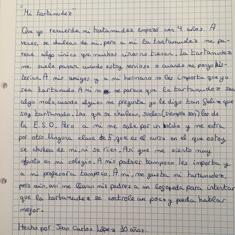 "Mi tartamudez"
Que yo recuerde mi tartamudez empezó los 4 años. A
veces, se burlan de mi, pero a mi la tartamudez me pa-
rece algo único que muchos niños no tienen. La tartamudez
me suele pasar cuando estoy nervioso o cuando me pongo his-
térico. A mis amigos y a mi hermano no les importa que yo
sea tartamudo. A mi no me parece que la tartamudez sea
algo malo, cuando alguien me pregunta yo le digo tan solo que
soy tartamudo. Los que se burlan, suelen (siempre son) los de
la E.S.O. Pero a mi me sale por un oído y me entra
por otro. Ninguna clase de 5º, que es el curso en el que estoy,
se burlan de mi ni se ríen. Así que me siento muy
a gusto en mi colegio. A mis padres tampoco les importa y
a mi profesora tampoco. A mi, me gusta mi tartamudez,
pero aún así me llevan mis padres a un logopeda para intentar
que la tartamudez se controle un poco y pueda hablar
mejor.
Hecho por: Juan Carlos López 10 años.